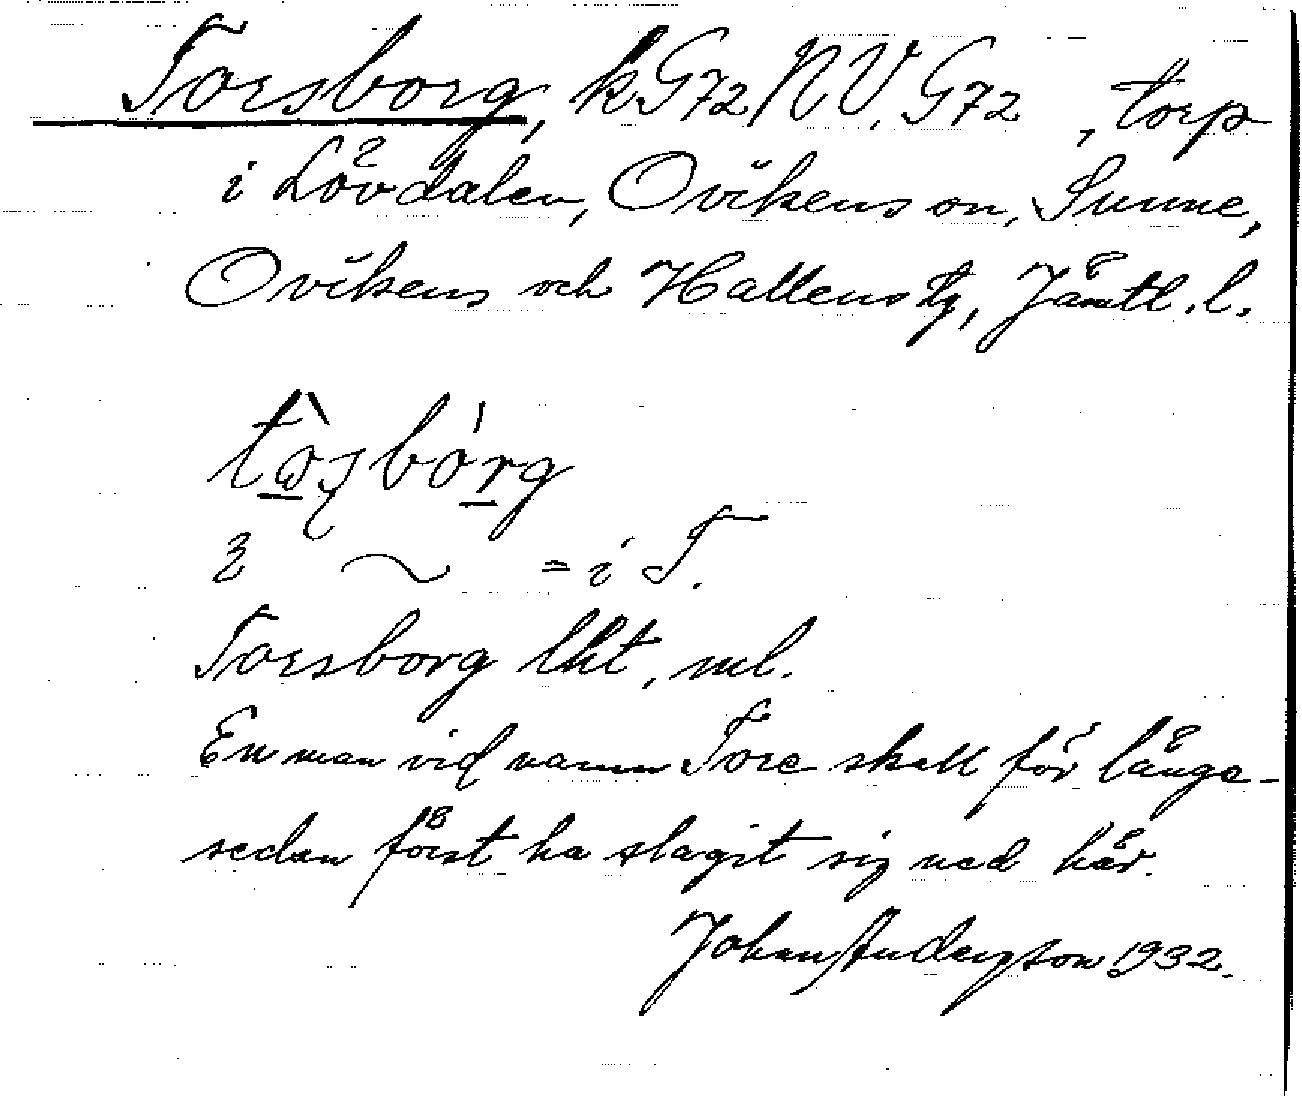 Torsborg, kG72 NV. G72, torp
i Lövdalen, Ovikens sn, Sunne,
Ovikens och Hallens tg, Jämtl. l.
= i T.
Torsborg lkt, ml.
En man vid namn Tore skall för länge-
sedan först ha slagit sig ned här.
Johan Andersson 1932.